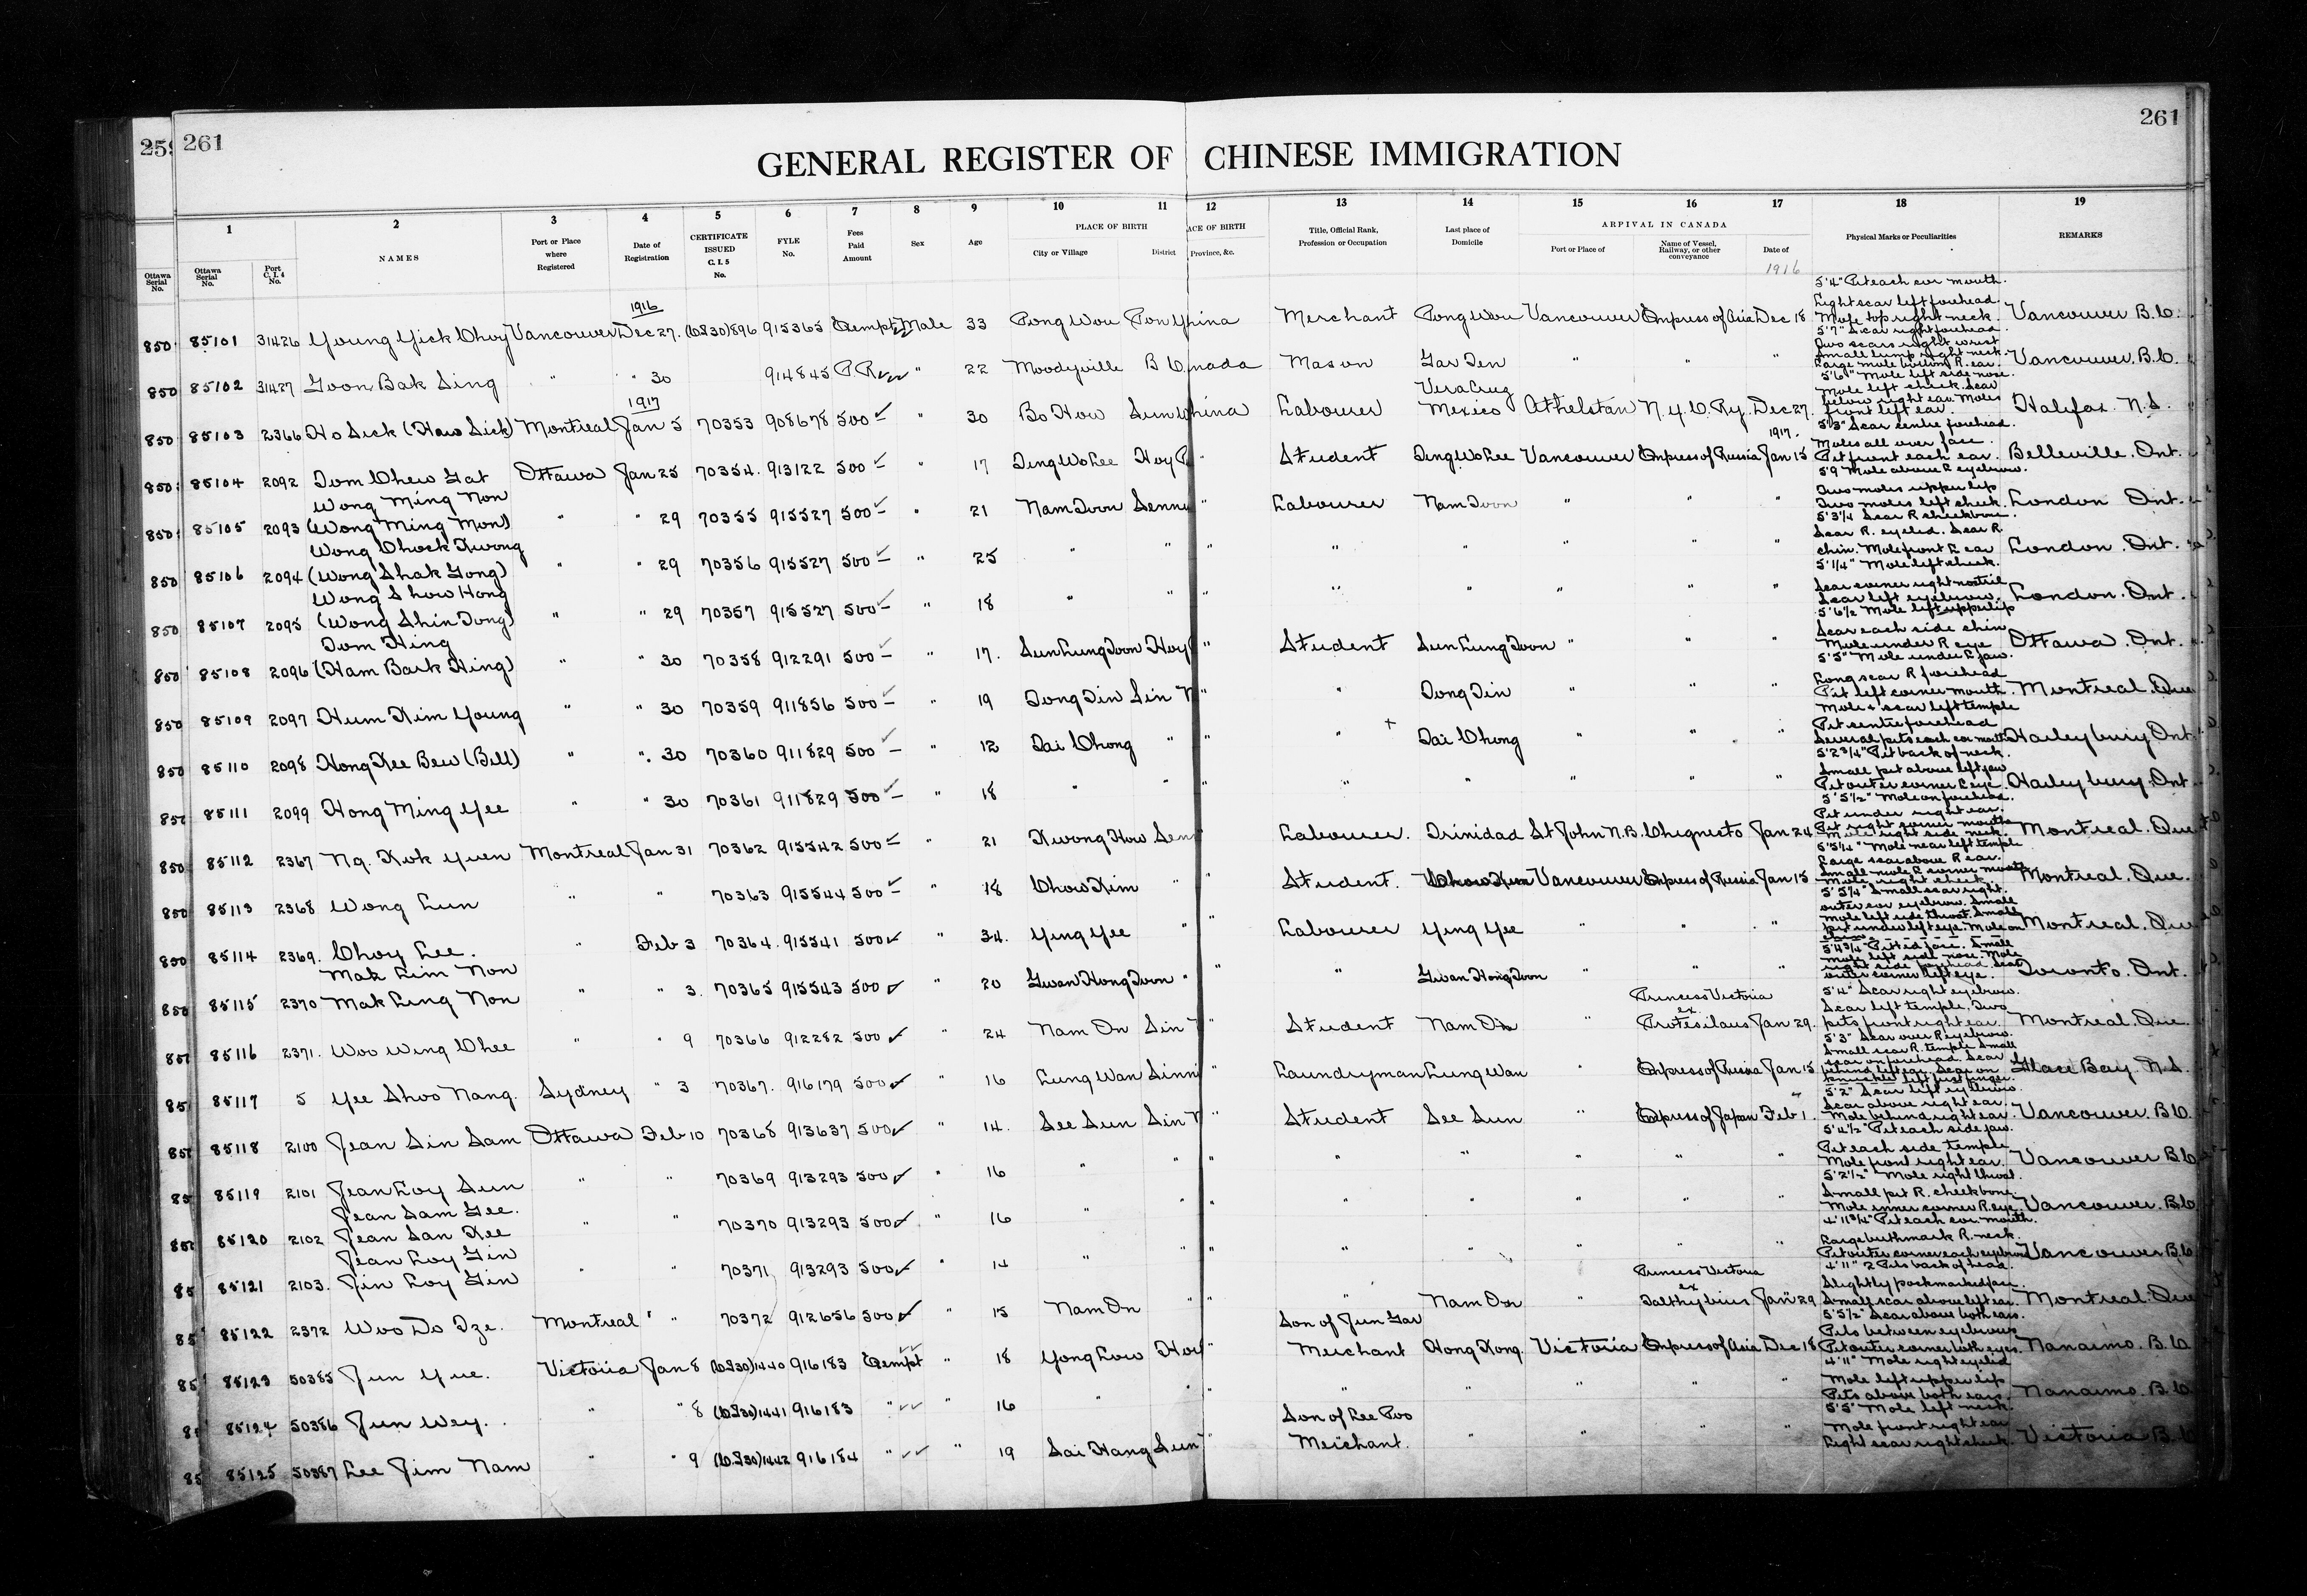 259 261 261
GENERAL REGISTER OF CHINESE IMMIGRATION
1 2 3 4 5 6 7 8 9 10 11 12 13 14 15 16 17 18 19
Ottawa Serial No. Ottawa Serial No. Port C. I. 4 No. NAMES Port or Place where Registered Date of Registration CERTIFICATE ISSUED C. I. 5 No. FYLE No. Fees Paid Amount Sex Age PLACE OF BIRTH City or Village District ACE OF BIRTH Province, &c. Title, Official Rank, Profession or Occupation Last place of Domicile ARRIVAL IN CANADA Port or Place of Name of Vessel, Railway, or other conveyance Date of Physical Marks or Peculiarities REMARKS
1916 1916
85101 31426 Young Yick Choy Vancouver Dec 27. (C.I.30)896 915365 Exempt Male 33 Pong Wou Pon Y hina Merchant Pong Wou Vancouver Empress of Asia Dec 18 5'4" Pit each cor mouth. Light scar left forehead. Mole top right neck. Vancouver B.C.
85102 31427 Goon Bak Sing " " 30 914845 " 22 Moodyville B C nada Mason Gar Ten " " " 5'7" Scar right forehead. Two scars right wrist Small lump right neck. Large mole bottom R. ear. Vancouver. B.C.
1917
85103 2366 Ho Sick (How Sick) Montreal Jan 5 70353 908678 500 " 30 Bo How Sun hina Labourer Vera Cruz Mexico Athelstan N.Y.C. Ry. Dec 27. 5'6" Mole left side nose. Mole left cheek. Scar below right ear. Moles front left ear. Halifax. N.S.
1917.
85104 2092 Tom Chew Gat Ottawa Jan 25 70354. 913122 500 " 17 Ting Wo Lee Hoy P " Student Ting Wo Lee Vancouver Empress of Russia Jan 15 5'3" Scar centre forehead. Moles all over face. Pit front each ear. Belleville. Ont.
85105 2093 Wong Ming Non (Wong Ming Mon) " " 29 70355 915527 500 " 21 Nam Toon Senn " Labourer Nam Toon " " " 5'9 Mole above L eyebrow. Two moles upper lip Two moles left cheek. London Ont.
85106 2094 Wong Chock Kwong (Wong Shak Gong) " " 29 70356 915527 500 " 25 " " " " " " " " 5'3¼ Scar R cheekbone. Scar R. eyelid. Scar R. chin. Mole front L ear London. Ont.
85107 2095 Wong Show Hong (Wong Shin Tong) " " 29 70357 915527 500 " 18 " " " " " " " " 5'1¼" Mole left cheek. Scar corner right nostril Scar left eyebrow. London. Ont.
85108 2096 Tom Hing (Ham Bark Hing) " " 30 70358 912291 500 " 17. Sun Lung Toon Hoy " Student Sun Lung Toon " " " 5'6½ Mole left upper lip Scar each side chin Mole under R eye Ottawa. Ont.
85109 2097 Hum Kim Young " " 30 70359 911856 500 " 19 Tong Tin Sin N " " Tong Tin " " " 5'5" Mole under L jaw. Long scar R forehead Pit left corner mouth. Montreal. Que
85110 2098 Hong Kee Bew (Bill) " " 30 70360 911829 500 " 12 Tai Chong " " " Tai Chong " " " Mole & scar left temple Pit centre forehead Several pits each cor mouth Haileybury Ont.
85111 2099 Hong Ming Yee " " 30 70361 911829 500 " 18 " " " " " " " " 5'2¾" Pit back of neck. Small pit above left jaw Pit outer corner L eye. Haileybury. Ont
85112 2367 Ng. Kok Yuen Montreal Jan 31 70362 915542 500 " 21 Kwong How Sen Labourer. Trinidad St John N.B. Chignecto Jan 24 5'5½" Mole on forehead. Pit under right ear. Pit right corner mouth Mole right side neck. Montreal. Que.
85113 2368 Wong Lun " " 70363 915544 500 " 18 Chow Kim " " Student. Chow Kim Vancouver Empress of Russia Jan 15 5'5¼" Mole near left temple Large scar above R ear. Small mole R corner mouth Mole right cheek. Montreal. Que.
85114 2369. Choy Lee. " Feb 3 70364. 915541 500 " 34. Ying Yee " " Labourer Ying Yee " " " 5'5¼" Small scar right. outer cor eyebrow. Small mole left side throat. Small pit under left eye. Mole on chin. Montreal. Que
85115 2370 Mak Lim Non Mak Ling Non " " 3. 70365 915543 500 " 20 Gwan Hong Toon " " " Gwan Hong Toon " " " 5'4¾" Pitted face. Small mole left side nose. Mole right side forehead. Scar outer corner left eye. Toronto. Ont.
85116 2371. Woo Wing Chee " " 9 70366 912282 500 " 24 Nam On Sin " Student Nam On " Princess Victoria ex Protesilaus Jan 29. 5'4" Scar right eyebrow. Scar left temple. Two pits front right ear. Montreal. Que.
85117 5 Yee Shoo Nang. Sydney " 3 70367. 916179 500 " 16 Lung Wan Sinn " Laundryman Lung Wan " Empress of Russia Jan 15 5'3" Scar over R eyebrow. Small scar R. temple Small scar on forehead. Scar behind left ear. Scar on knuckle left first finger. Glace Bay. N.S.
85118 2100 Jean Sin Sam Ottawa Feb 10 70368 913637 500 " 14. See Sun Sin N " Student See Sun " Empress of Japan Feb 1. 5'2" Scar left eyebrow. Scar above right ear. Mole behind right ear. Vancouver. B.C.
85119 2101 Jean Loy Sun " " 70369 913293 500 " 16 " " " " " " " " 5'4½" Pit each side jaw. Pit each side temple Mole front right ear. Vancouver B.C.
85120 2102 Jean Sam Gee. Jean San Kee " " 70370 913293 500 " 16 " " " " " " " " 5'2½" Mole right throat. Small pit R. cheekbone. Mole inner corner R. eye. Vancouver. B.C.
85121 2103. Jean Loy Gin Jin Loy Gin " " 70371 913293 500 " 14 " " " " " " " " 4'11¾" Pit each cor. mouth. Large birthmark R. neck. Pit outer corner each eyebrow Vancouver B.C.
85122 2372 Woo Do Sze. Montreal " " 70372 912656 500 " 15 Nam On " " " Nam On " Princess Victoria ex Talthybius Jan 29 4'11" 2 Pits back of head. Slightly pockmarked face. Small scar above left ear. Montreal. Que
85123 50385 Jun Yue. Victoria Jan 8 (C.I.30)1440 916183 Exempt " 18 Yong Low Hoy " Son of Jun Gar Merchant Hong Kong. Victoria Empress of Asia Dec 18 5'5½" Scar above both ears. Pits between eyebrows Pit outer corner both eyes. Nanaimo. B.C.
85124 50386 Jun Wey. " " 8 (C.I.30)1441 916183 " " 16 " " " " " " " " 4'11" Mole right eyelid Mole left upper lip Pits above both ears. Nanaimo. B.C.
85125 50387 Lee Jim Nam " " 9 (C.I.30)1442 916184 " " 19 Sai Hang Sun " Son of Lee Poo Merchant. " " " " 5'5" Mole left neck. Mole front right ear Light scar right cheek. Victoria B.C.